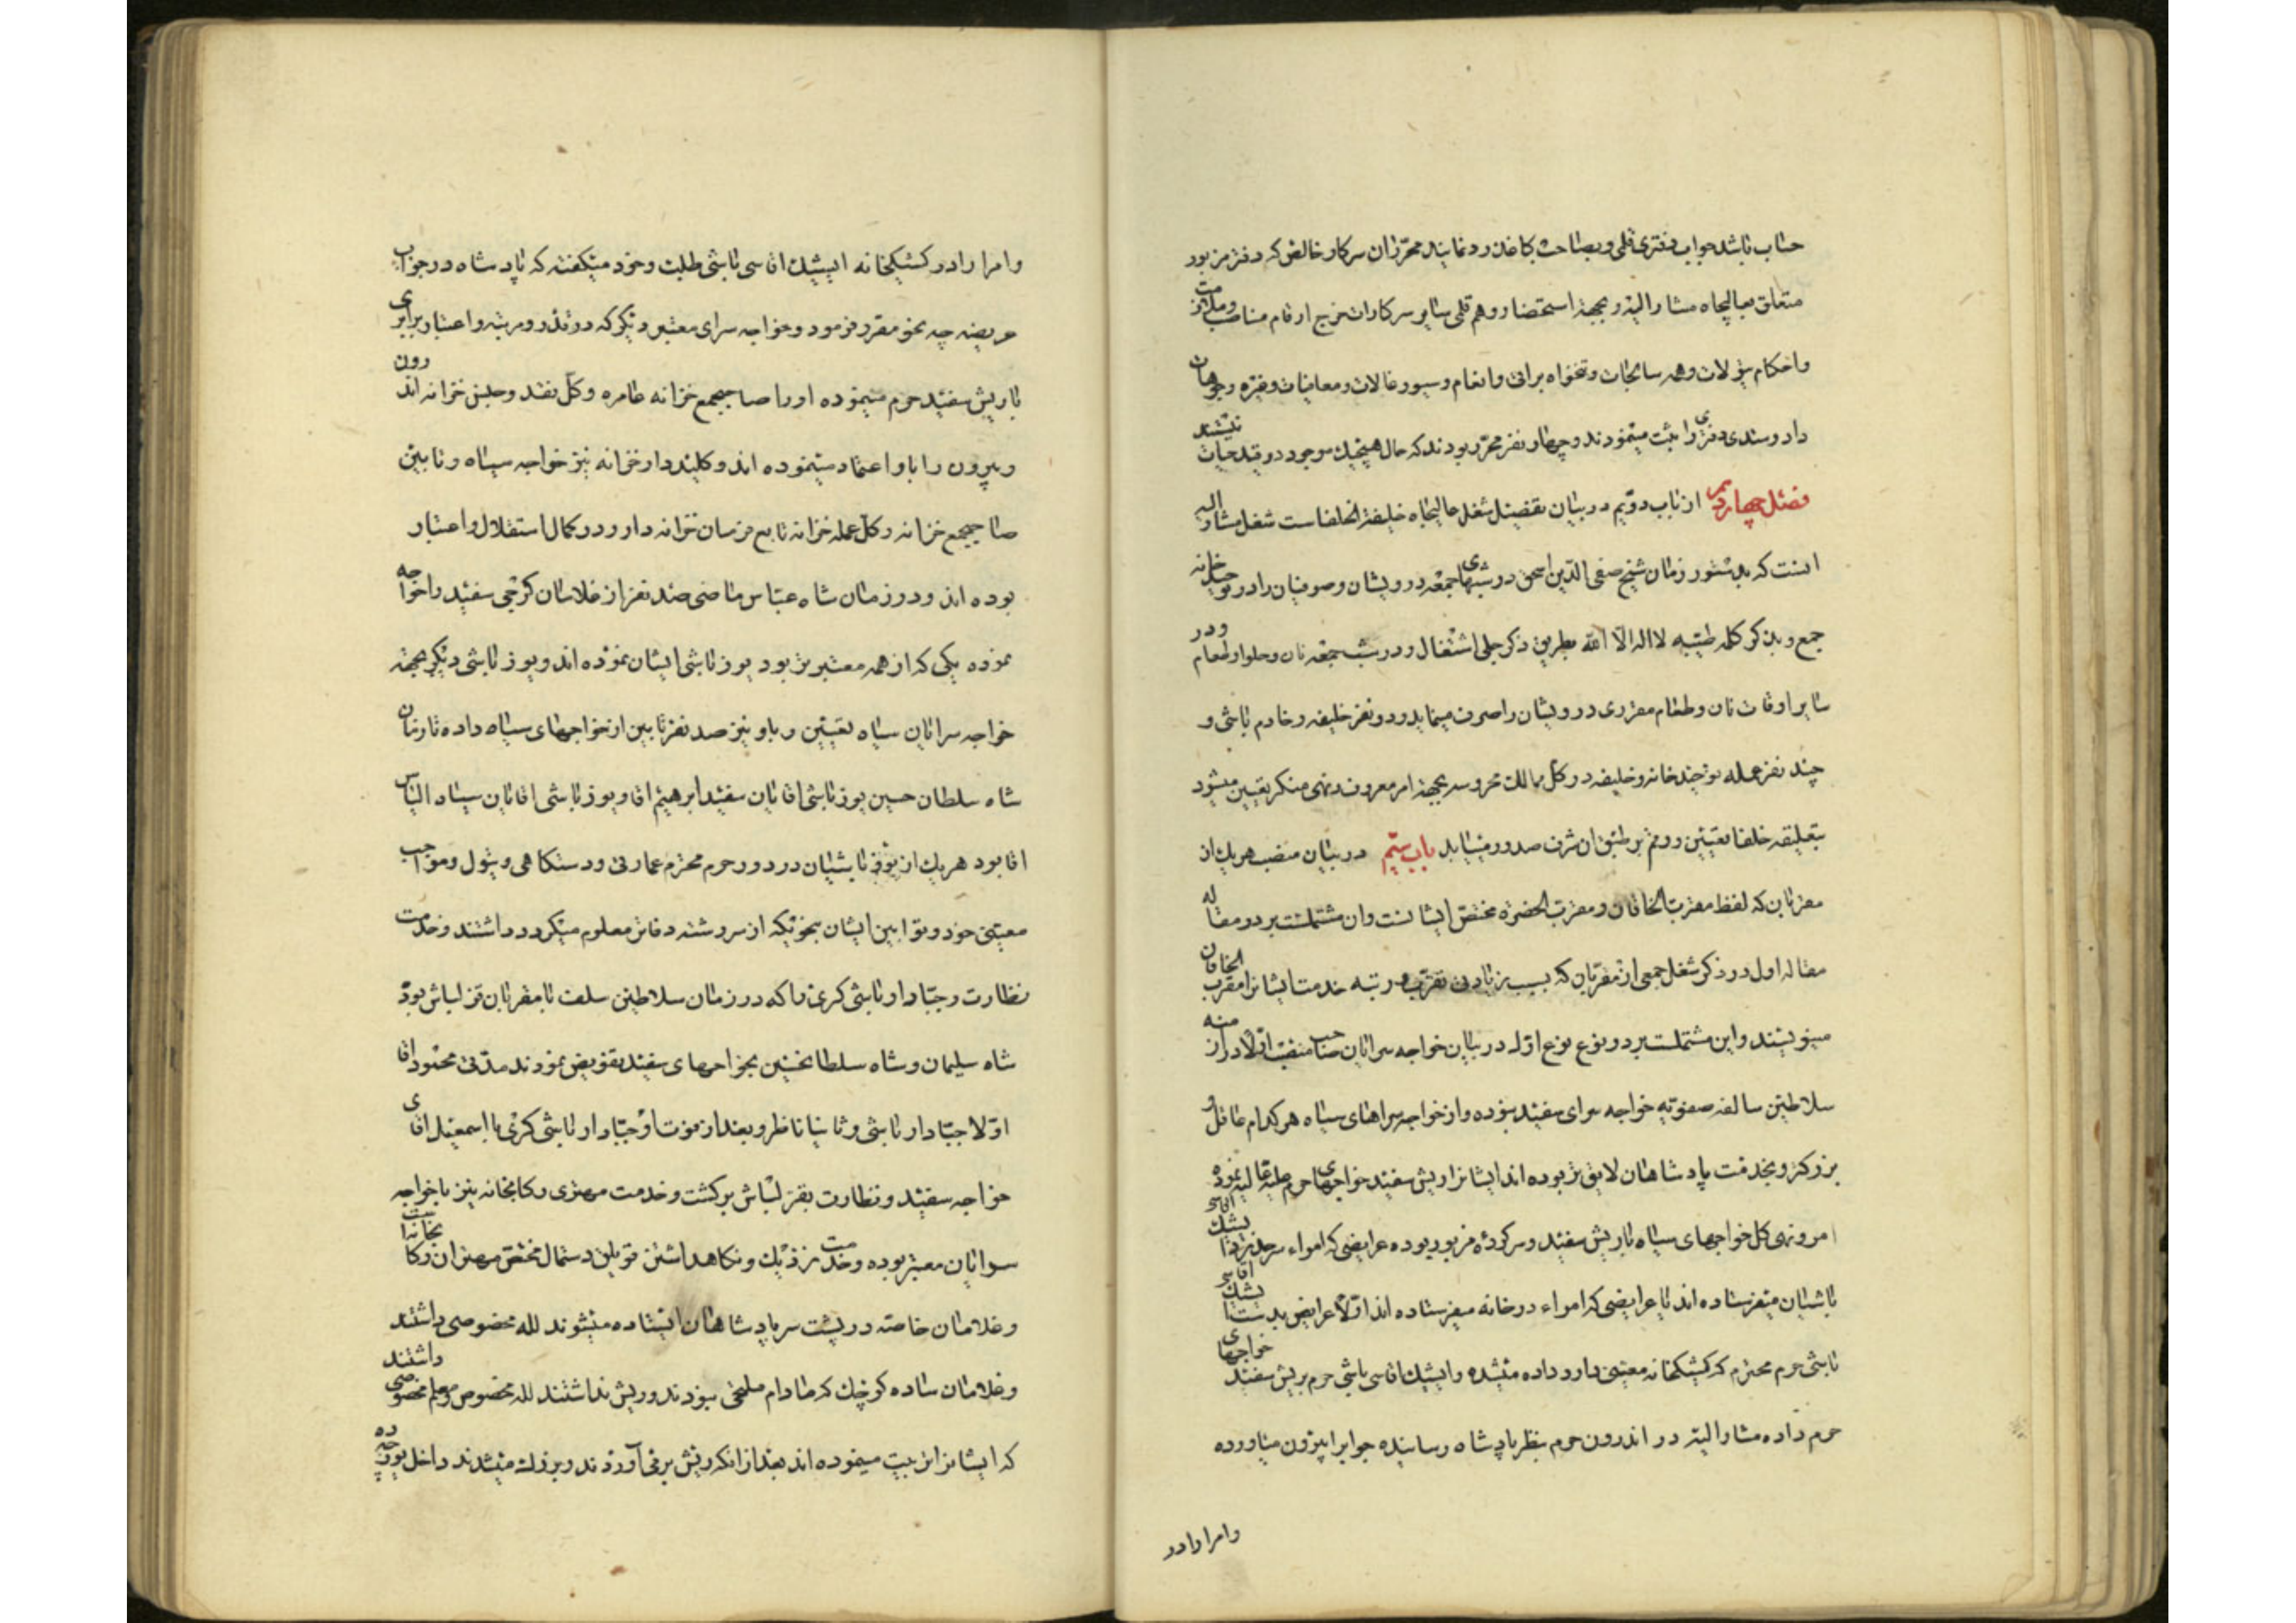 حساب باشد جواب دفتری قلمی و بصاحب کاغذ رد نمایند محرران سرکار خالصه که دفتر مزبور
متعلق بعالیجاه مشار الیه و بجهة استحضار و هم قلمی سایر سرکارات نرخ ارقام مناصب و ملازمت
و احکام تیولات و همه سالجات و تنخواه براتی و انعام و سیورغالات و معافیات و غیره وجوهات
داد و ستدی دفتری را ثبت مینمودند و چهار نفر محرر بودند که حال هیچیک موجود در قید حیات نیستند
فصل چهاردهم از باب دویم در بیان تفصیل شغل عالیجاه خلیفة الخلفاست شغل مشار الیه
اینست که بدستور زمان شیخ صفی الدین اسحق در شبهای جمعه درویشان و صوفیان را در توحیدخانه
جمع و بذکر کلمه طیبه لا اله الا الله بطریق ذکر جلی اشتغال و در شب جمعه نان و حلوا و طعام و در
سایر اوقات نان و طعام مقرری درویشان را صرف مینماید و دو نفر خلیفه و خادم باشی و
چند نفر عمله توحیدخانه و خلیفه در کل ممالک محروسه بجهة امر معروف و نهی منکر تعیین میشود
بتعلیقه خلفا تعیین و رقم بر طبق ان شرف صدور میابد باب سیم در بیان منصب هریک از
مقربان که لفظ مقرب الخاقان و مقرب الحضره مختص ایشانست وان مشتملست بر دو مقاله
مقاله اول در ذکر شغل جمعی از مقربان که بسبب زیادتی تقرب و رتبه خدمت ایشانرا مقرب الخاقان
مینویسند و این مشتملست بر دو نوع نوع اول در بیان خواجه سرایان صاحب منصب اولا در ازمنه
سلاطین سالفه صفویه خواجه سرای سفید نبوده و از خواجه سراهای سیاه هر کدام عاقل و
بزرگتر و بخدمت پادشاهان لایق تر بوده اند ایشانرا ریش سفید خواجهای حرم علیه عالیه نموده
امر و نهی کل خواجهای سیاه با ریش سفید و سرکرده مزبور بوده عرایضی که امراء سرحد نزد ایشیک اقاسی
باشیان میفرستاده اند یا عرایضی که امراء درخانه میفرستاده اند اولا عرایض بدست ایشیک اقاسی
باشی حرم محترم که کشیکخانه معینی دارد داده میشده و ایشیک اقاسی باشی حرم بریش سفید خواجهای
حرم داده مشار الیه در اندرون حرم بنظر پادشاه رسانیده جوابرا بیرون میاورده
وامرا را در
وامرا را در کشیکخانه ایشیک اقاسی باشی طلبت و خود میکفته که پادشاه در جواب
عریضه چه نحو مقرر فرمود و خواجه سرای معتبر دیگر که در قدر و مرتبه و اعتبار برابری
با ریش سفید حرم مینموده او را صاحبجمع خزانه عامره و کل نقد و جنس خزانه اندرون
و بیرون را باو اعتماد مینموده اند و کلیددار خزانه نیز خواجه سیاه و تابین
صاحبجمع خزانه و کل عمله خزانه تابع فرمان خزانه دار و در کمال استقلال و اعتبار
بوده اند و در زمان شاه عباس ماضی صد نفر از غلامان گرجی سفید را خواجه
نموده یکی که از همه معتبرتر بود یوزباشی ایشان نموده اند و یوزباشی دیگر بجهة
خواجه سرایان سیاه تعیین و باو نیز صد نفر تابین از خواجهای سیاه داده تا زمان
شاه سلطان حسین یوزباشی اقایان سفید ابرهیم اقا و یوزباشی اقایان سیاه الیاس
اقا بود هریک از یوزباشیان در دور حرم محترم عمارتی و دستکاهی و تیول و مواجب
معینی خود و توابین ایشان بنحویکه از سررشته دفاتر معلوم میکردد داشتند و خدمت
نظارت و جبادارباشی گری را که در زمان سلاطین سلف با مقربان قزلباش بود
شاه سلیمان و شاه سلطان حسین بخواجهای سفید تفویض نمودند مدتی محمود اقا
اولا جبادار باشی و ثانیا ناظر و بعد از فوت او جبادار باشی گری با اسمعیل اقای
خواجه سفید و نظارت بقزلباش برکشت و خدمت مهتری رکابخانه نیز با خواجه
سرایان معتبر بوده و خدمت نزدیک و نگاهداشتن قوبلق دستمال مختص مهتران رکابخانه است
و غلامان خاصه در پشت سر پادشاهان ایستاده میشوند لله مخصوصی داشتند
و غلامان ساده کوچک که مادام ملتحی نبودند و ریش نداشتند لله مخصوص و معلم مخصوصی داشتند
که ایشانرا تربیت مینموده اند بعد از انکه ریش برمی آوردند و بزرک میشدند داخل یوزچه